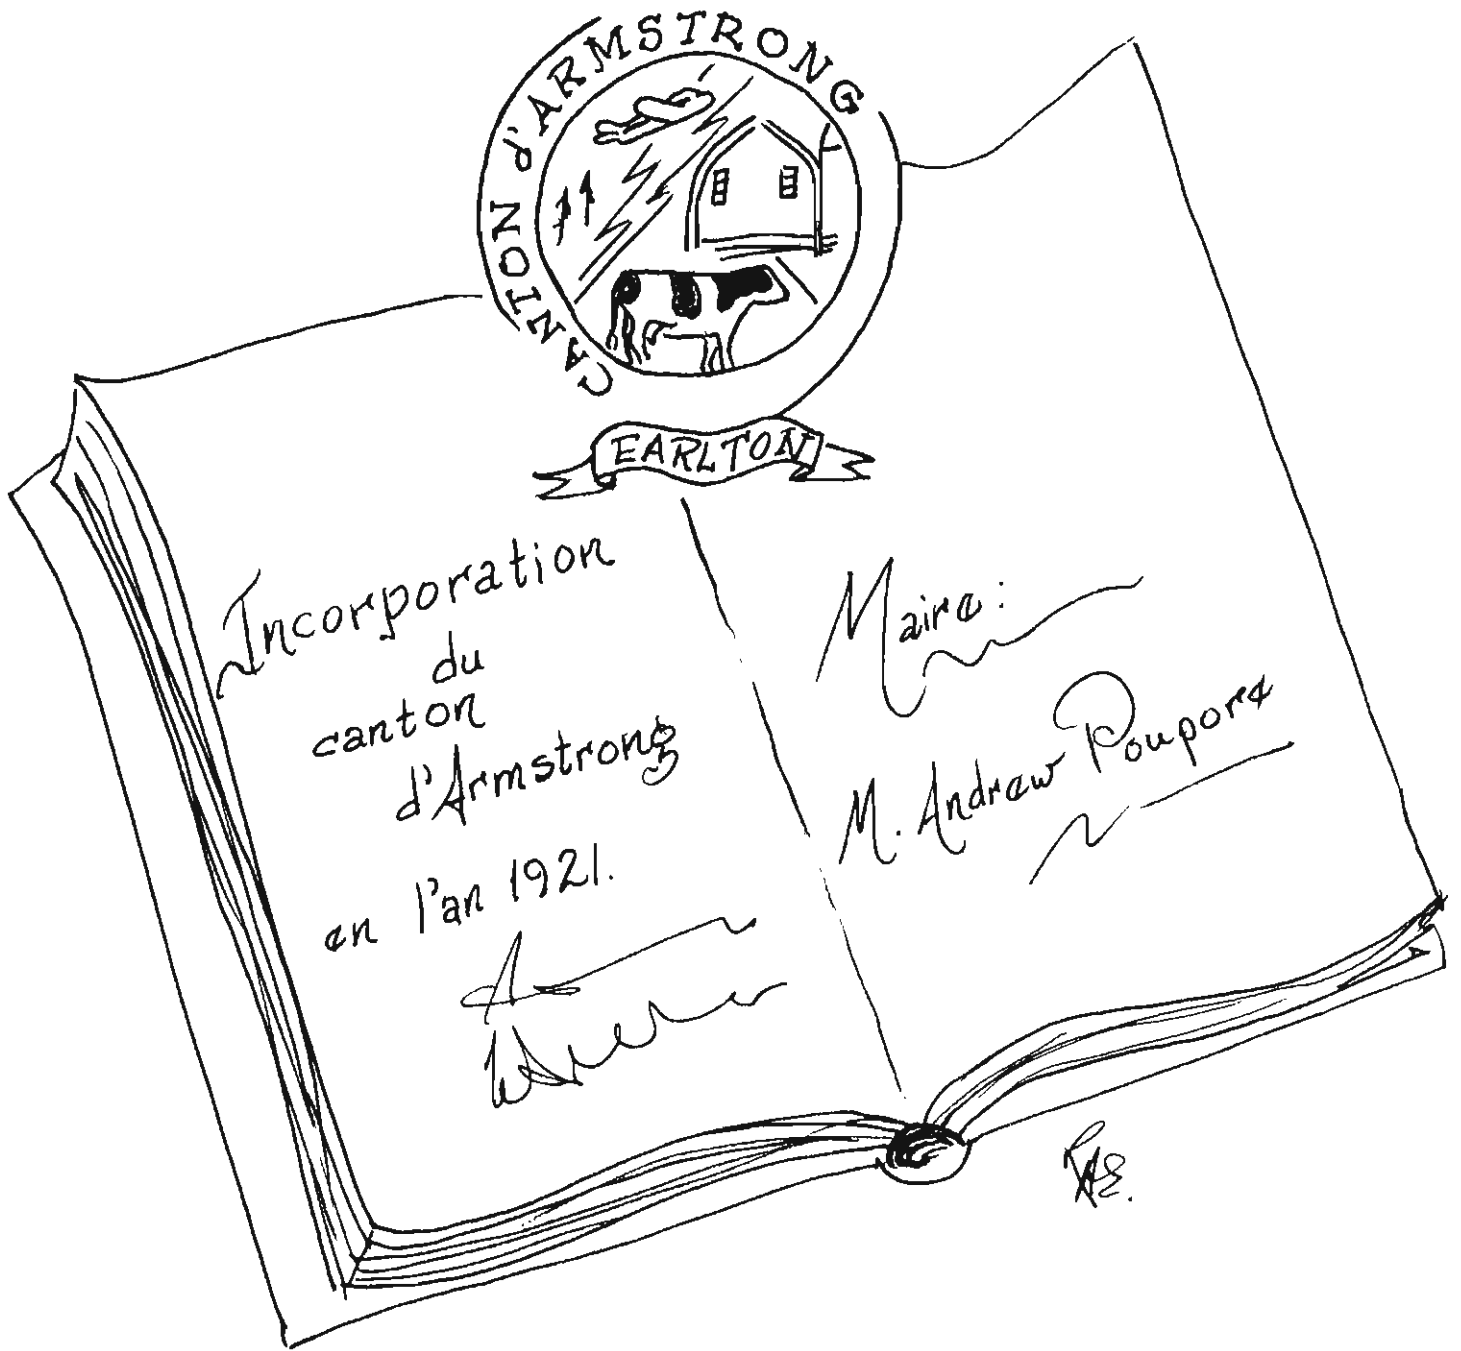 CANTON d'ARMSTRONG
EARLTON
Incorporation
du
canton
d'Armstrong
en l'an 1921.
Maire:
M. Andrew Poupore